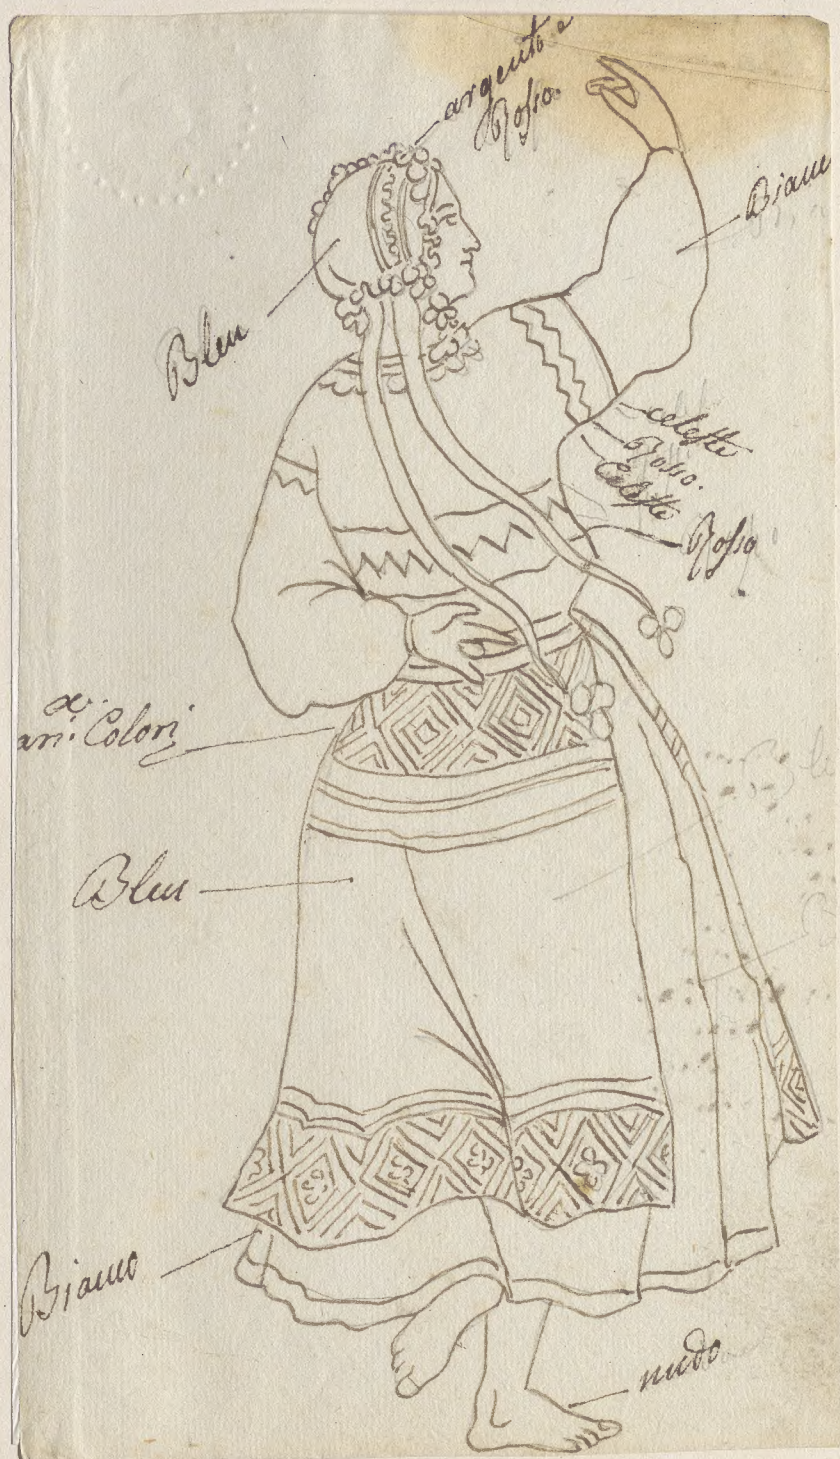 argento e
Rosso.
Bianc
Bleu
celeste
Rosso.
Celeste
Rosso
a
ari. Colori
Bleu
Bianco
nudo